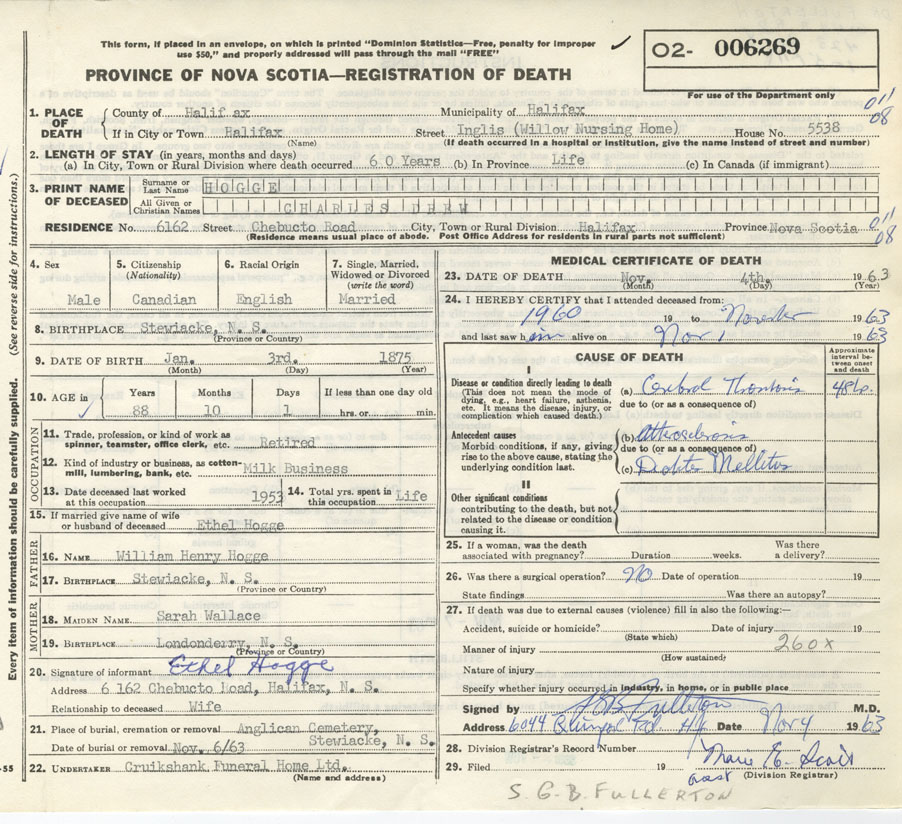 This form, if placed in an envelope, on which is printed "Dominion Statistics—Free, penalty for improper
use $50," and properly addressed will pass through the mail "FREE"
✓
O2- 006269
For use of the Department only
PROVINCE OF NOVA SCOTIA—REGISTRATION OF DEATH
1. PLACE OF DEATH
County of Halifax Municipality of Halifax
If in City or Town Halifax Street Inglis (Willow Nursing Home) House No. 5538
(Name) (If death occurred in a hospital or institution, give the name instead of street and number)
011
08
2. LENGTH OF STAY (in years, months and days)
(a) In City, Town or Rural Division where death occurred 60 Years (b) In Province Life (c) In Canada (if immigrant)
3. PRINT NAME OF DECEASED
Surname or Last Name HOGGE
All Given or Christian Names CHARLES DREW
RESIDENCE No. 6162 Street Chebucto Road City, Town or Rural Division Halifax Province Nova Scotia
(Residence means usual place of abode. Post Office Address for residents in rural parts not sufficient)
011
08
(See reverse side for instructions.)
Every item of information should be carefully supplied.
4. Sex
Male
5. Citizenship (Nationality)
Canadian
6. Racial Origin
English
7. Single, Married, Widowed or Divorced (write the word)
Married
8. BIRTHPLACE Stewiacke, N. S.
(Province or Country)
9. DATE OF BIRTH Jan. 3rd. 1875
(Month) (Day) (Year)
10. AGE in
Years Months Days If less than one day old
88 10 1 hrs. or min.
OCCUPATION
11. Trade, profession, or kind of work as spinner, teamster, office clerk, etc. Retired
12. Kind of industry or business, as cotton-mill, lumbering, bank, etc. Milk Business
13. Date deceased last worked at this occupation 1953
14. Total yrs. spent in this occupation Life
15. If married give name of wife or husband of deceased Ethel Hogge
FATHER
16. NAME William Henry Hogge
17. BIRTHPLACE Stewiacke, N. S.
(Province or Country)
MOTHER
18. MAIDEN NAME Sarah Wallace
19. BIRTHPLACE Londonderry, N. S.
(Province or Country)
20. Signature of informant Ethel Hogge
Address 6162 Chebucto Road, Halifax, N. S.
Relationship to deceased Wife
21. Place of burial, cremation or removal Anglican Cemetery,
Stewiacke, N. S.
Date of burial or removal Nov. 6/63
22. UNDERTAKER Cruikshank Funeral Home Ltd.
(Name and address)
-55
MEDICAL CERTIFICATE OF DEATH
23. DATE OF DEATH Nov. 4th. 1963
(Month) (Day) (Year)
24. I HEREBY CERTIFY that I attended deceased from:
1960 19 to November 1963
and last saw him alive on Nov 1 1963
CAUSE OF DEATH
Approximate interval between onset and death
I
Disease or condition directly leading to death
(This does not mean the mode of dying, e.g., heart failure, asthenia, etc. It means the disease, injury, or complication which caused death.)
(a) Cerebral Thrombosis 48h.
due to (or as a consequence of)
Antecedent causes
Morbid conditions, if any, giving rise to the above cause, stating the underlying condition last.
(b) Atherosclerosis
due to (or as a consequence of)
(c) Diabetes Mellitus
II
Other significant conditions
contributing to the death, but not related to the disease or condition causing it.
25. If a woman, was the death associated with pregnancy? Duration weeks. Was there a delivery?
26. Was there a surgical operation? NO Date of operation 19
State findings Was there an autopsy?
27. If death was due to external causes (violence) fill in also the following:—
Accident, suicide or homicide? Date of injury 19
(State which)
Manner of injury 260X
(How sustained)
Nature of injury
Specify whether injury occurred in industry, in home, or in public place
Signed by SGB Fullerton M.D.
Address 6044 Quinpool Rd. Hfx Date Nov 4 1963
28. Division Registrar's Record Number
29. Filed 19
(Division Registrar)
S. G. B. FULLERTON